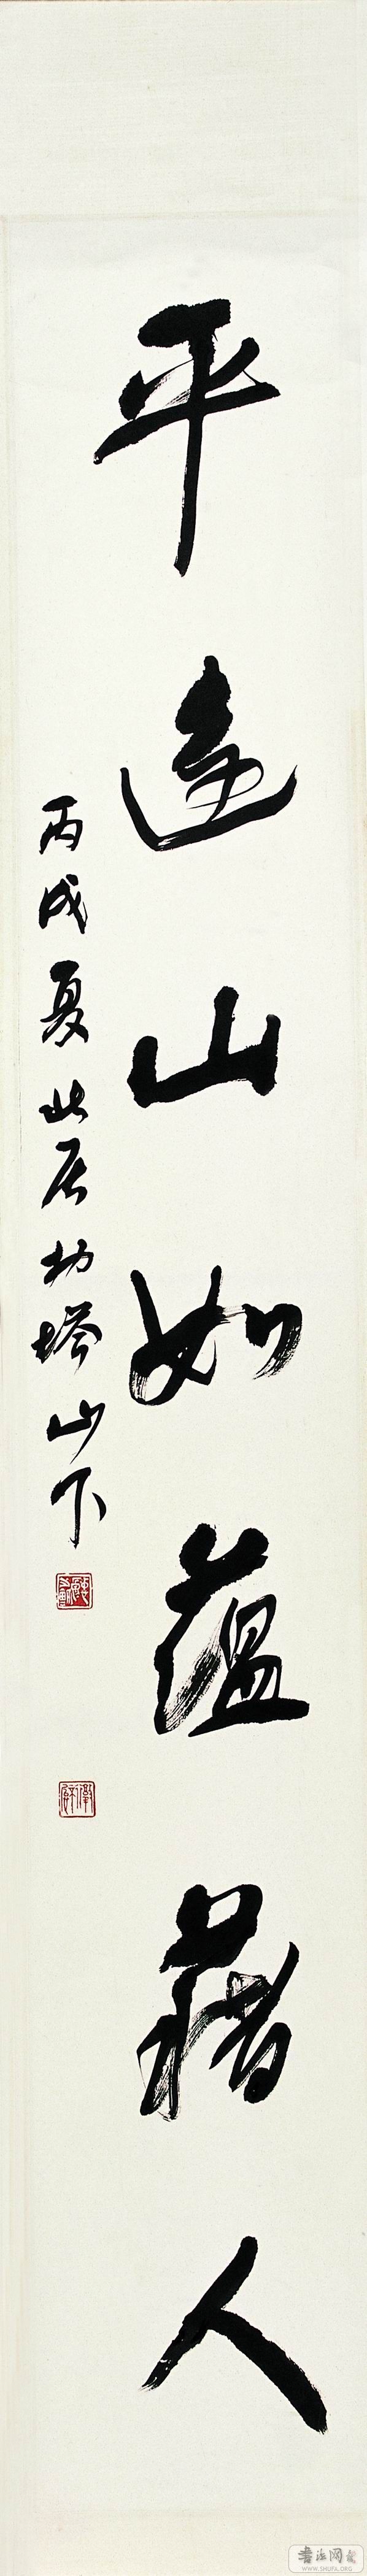 平远山如蕴藉人
丙戌夏北居功塔山下
书法网
WWW.SHUFA.ORG